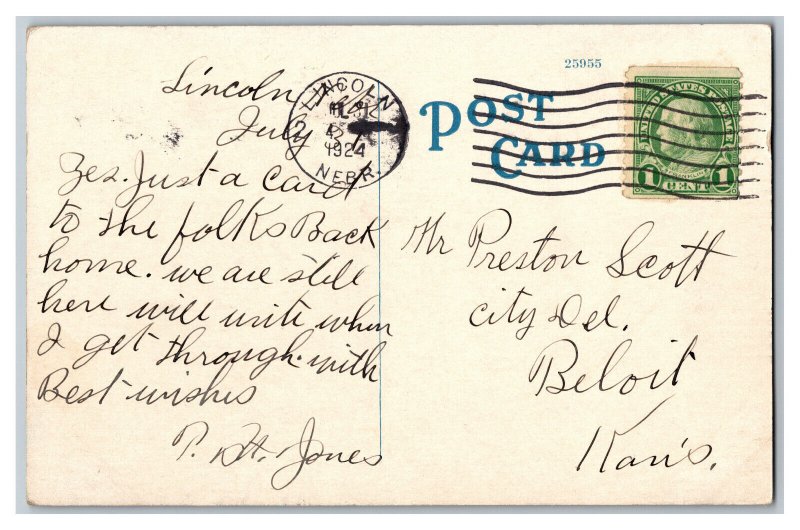 25955
POST
CARD
LINCOLN
1924
NEBR.
UNITED STATES POSTAGE
FRANKLIN
1 CENT 1
Lincoln
July
Yes. Just a card
to the folks Back
home. we are still
here will write when
I get through. with
Best wishes
Jones
Mr Preston Scott
city Del.
Beloit
Kans.